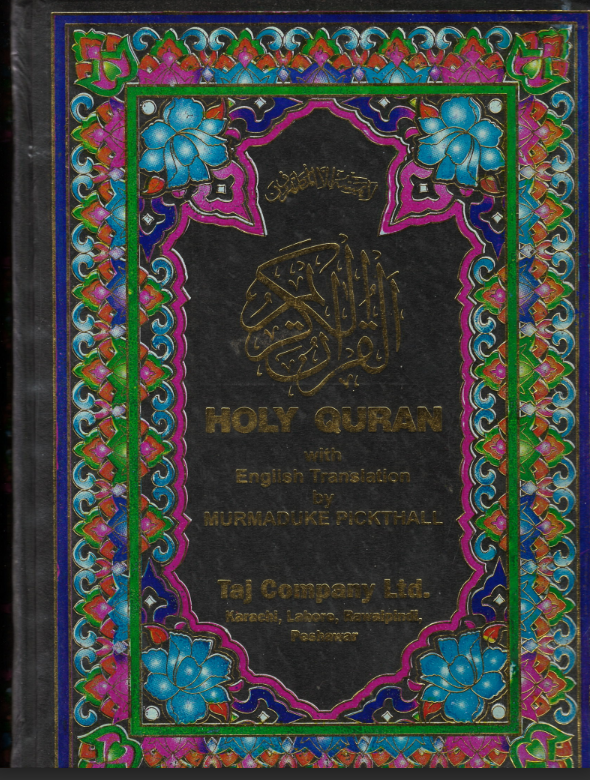 القرآن الكريم
HOLY QURAN
with
English Translation
by
MURMADUKE PICKTHALL
Taj Company Ltd.
Karachi, Lahore, Rawalpindi,
Peshawar